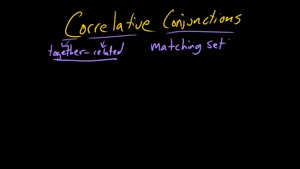 Correlative Conjunctions
together-related matching set